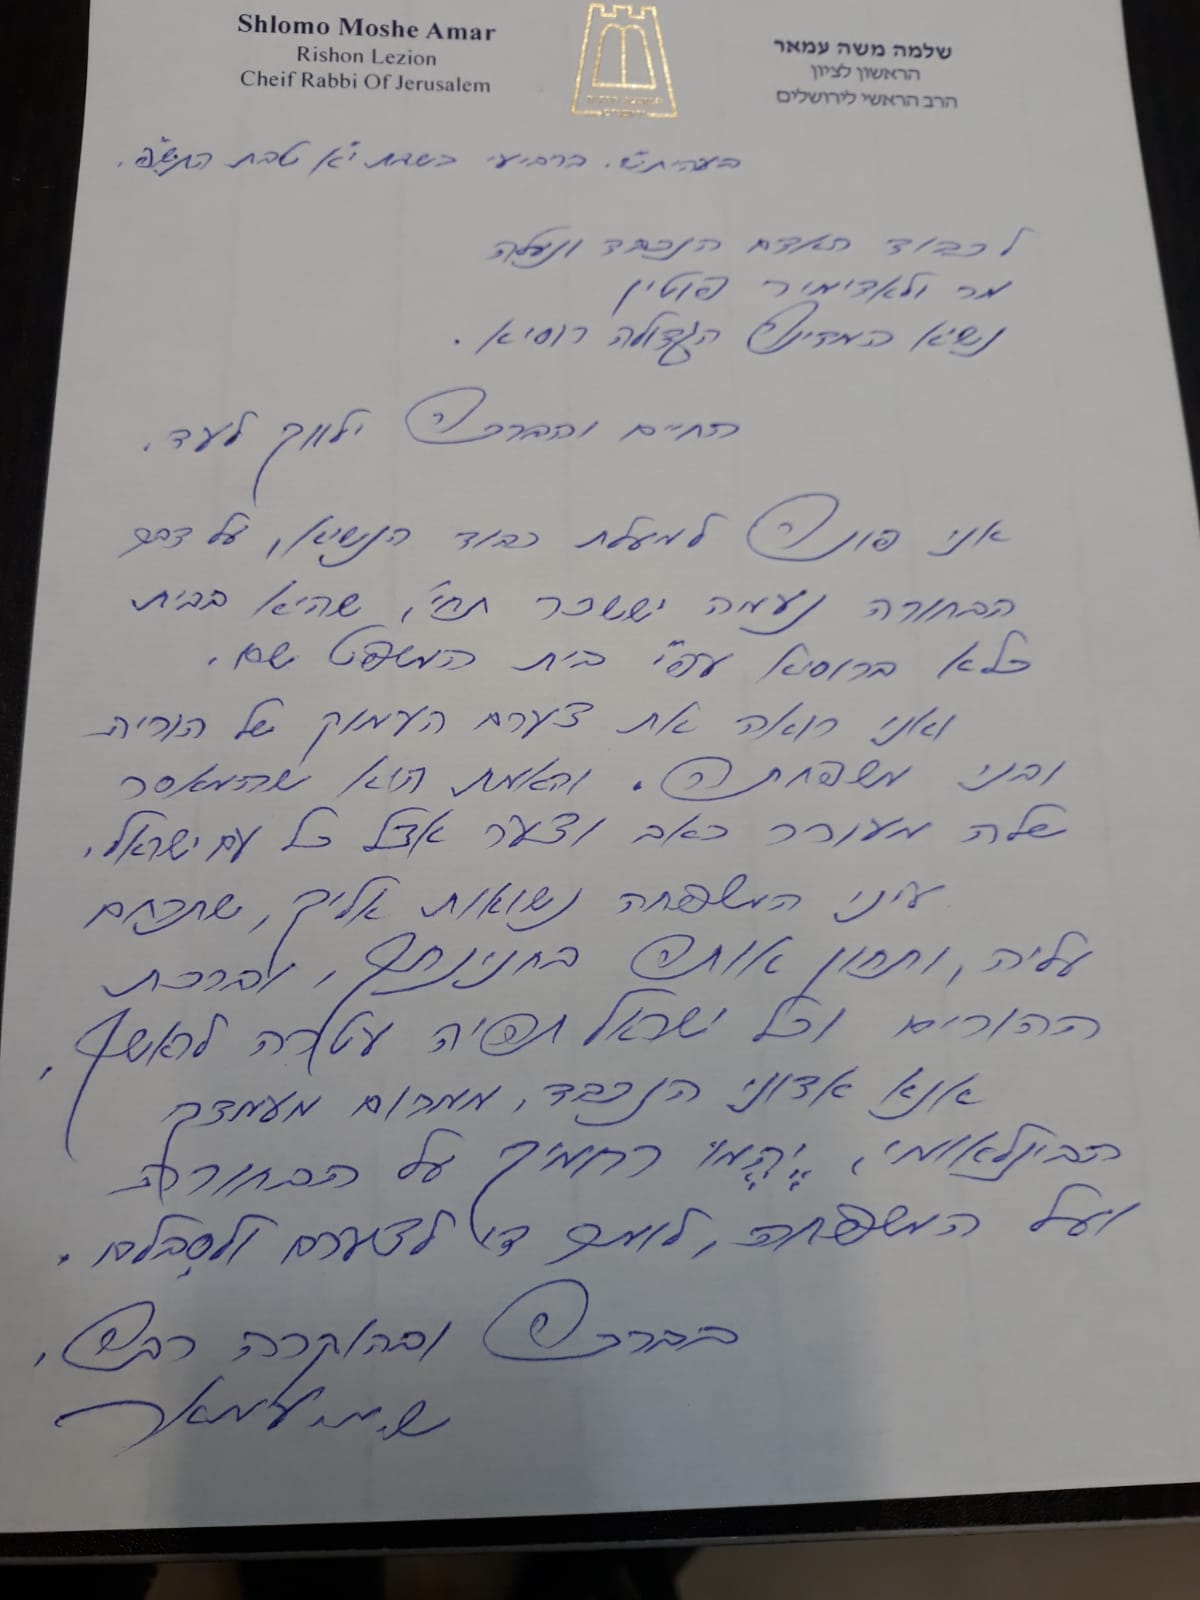 Shlomo Moshe Amar
Rishon Lezion
Cheif Rabbi Of Jerusalem
שלמה משה עמאר
הראשון לציון
הרב הראשי לירושלים
בעהית"ש. ברביעי בשבת י"א טבת התש"פ.
לכבוד האדם הנכבד ונעלה
מר ולאדימיר פוטין
נשיא המדינה הגדולה רוסיא.
החיים והברכה ילווך לעד.
אני פונה למעלת כבוד הנשיא, על דבר
הבחורה נעמה יששכר תחי', שהיא בבית
כלא ברוסיא עפ"י בית המשפט שם.
ואני רואה את צערם העמוק של הוריה
ובני משפחתה. והאמת היא שהמאסר
שלה מעורר כאב וצער אצל כל עם ישראל.
עיני המשפחה נשואות אליך, שתרחם
עליה, ותחון אותה בחנינתך, וברכת
ההורים וכל ישראל תהיה עטרה לראשך.
אנא אדוני הנכבד, ממרום מעמדך
הבינלאומי, יֶהֱמוּ רחמיך על הבחורה
ועל המשפחה, לומר די לצערם ולסבלם.
בברכה ובהוקרה רבה,
ש.מ. עמאר